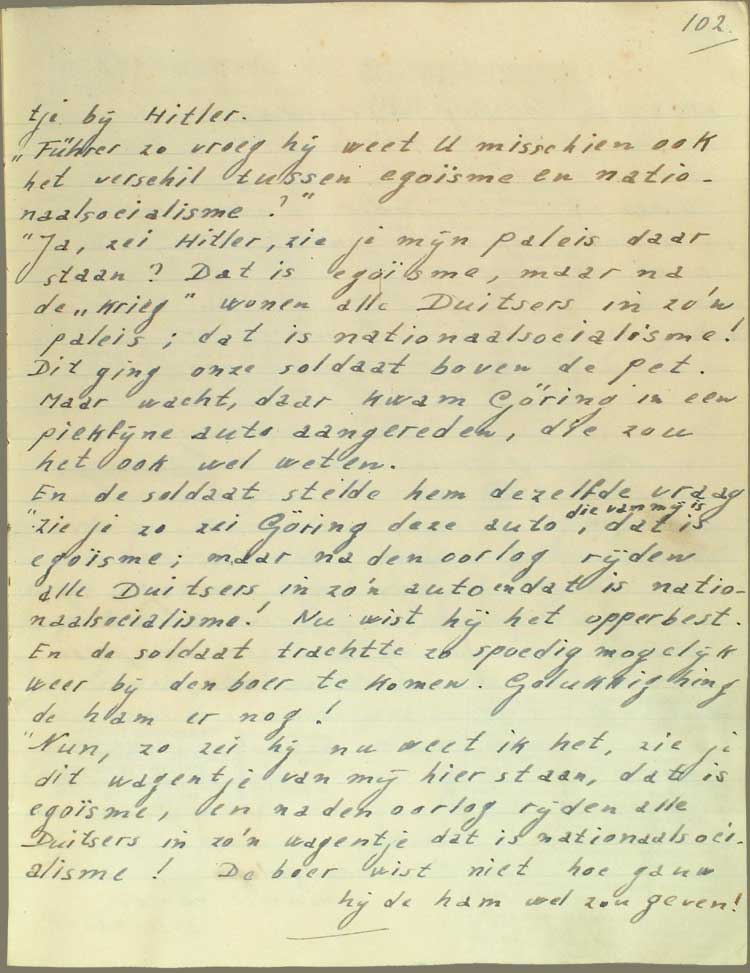 102.
tje bij Hitler.
„Führer zo vroeg hij weet U misschien ook
het verschil tussen egoïsme en natio-
naalsocialisme ?"
"Ja, zei Hitler, zie je mijn paleis daar
staan ? Dat is egoïsme, maar na
de „Krieg" wonen alle Duitsers in zo'n
paleis ; dat is nationaalsocialisme!
Dit ging onze soldaat boven de pet.
Maar wacht, daar kwam Göring in een
piekfijne auto aangereden, die zou
het ook wel weten.
En de soldaat stelde hem dezelfde vraag
"Zie je zo zei Göring deze auto die van mij is, dat is
egoïsme; maar na den oorlog rijden
alle Duitsers in zo'n auto en dat is natio-
naalsocialisme! Nu wist hij het opperbest.
En de soldaat trachtte zo spoedig mogelijk
weer bij den boer te komen. Gelukkig hing
de ham er nog!
"Nun, zo zei hij nu weet ik het, zie je
dit wagentje van mij hier staan, dat is
egoïsme, en na den oorlog rijden alle
Duitsers in zo'n wagentje dat is nationaalsoci-
alisme ! De boer wist niet hoe gauw
hij de ham wel zou geven!